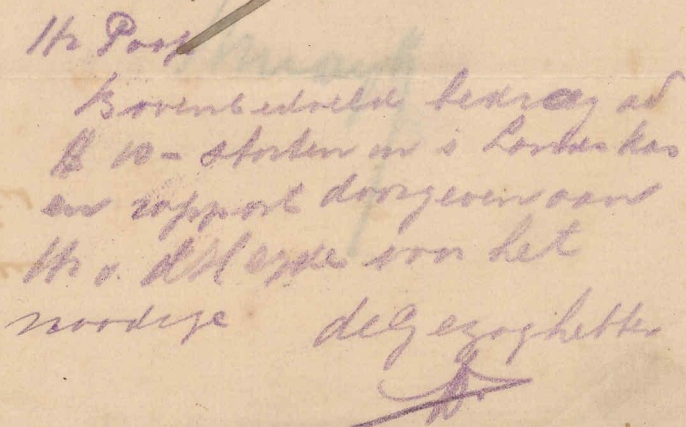 Hr Poop
Bovenbedoelde bedrag ad
ƒ 10 – storten in 's Landskas
en rapport doorgeven aan
Hr v. d Heyde voor het
noodige de Gezaghebber